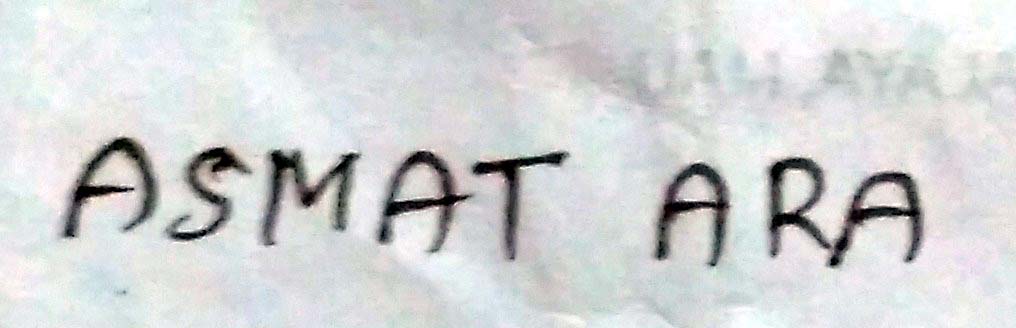 ASMAT ARA